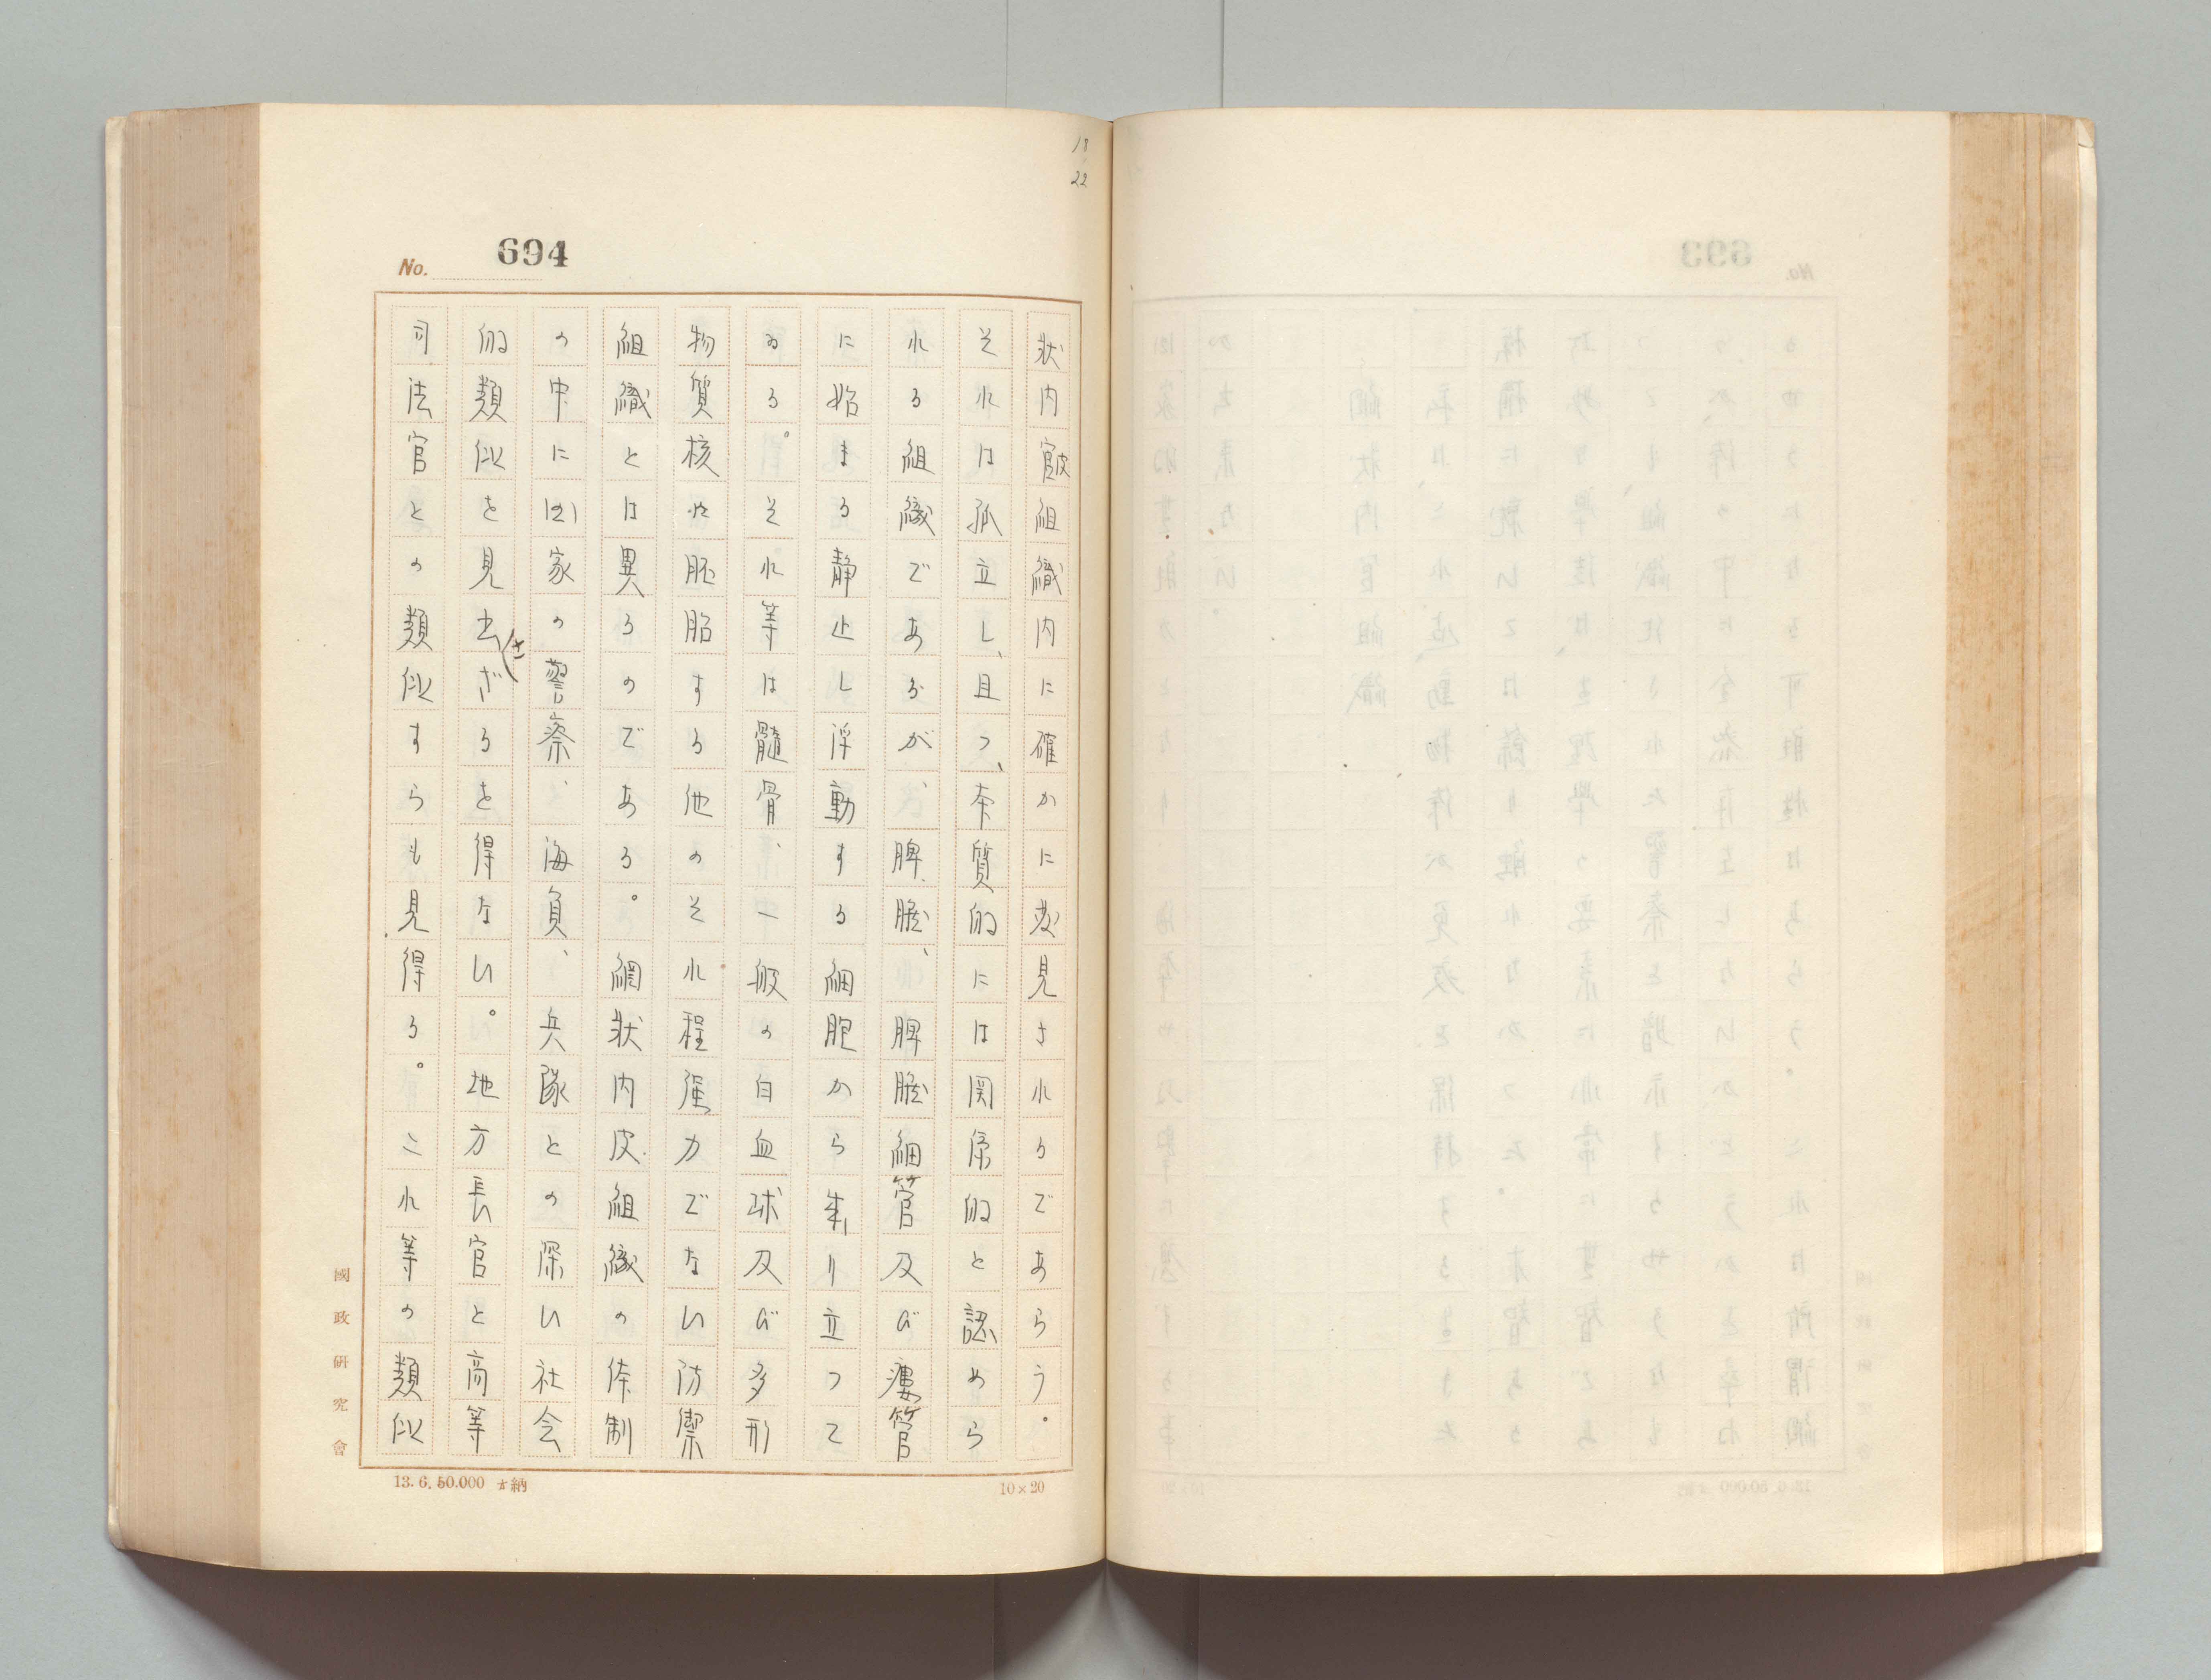 18
22
No. 694
状内皮組織内に確かに発見されるであらう。
それは孤立し、且つ、本質的には関係的と認めら
れる組織であるが、脾臓、脾臓細管及び瘻管
に始まる静止し浮動する細胞から成り立つて
ゐる。それ等は髄骨、一般の白血球及び多形
物質核や胚胎する他のそれ程強力でない防禦
組織とは異るのである。網状内皮組織の体制
の中に国家の警察、海員、兵隊との深い社会
的類似を見出さざるを得ない。地方長官と高等
司法官との類似すらも見得る。これ等の類似
國政研究會
13. 6. 50.000 オ納
10×20